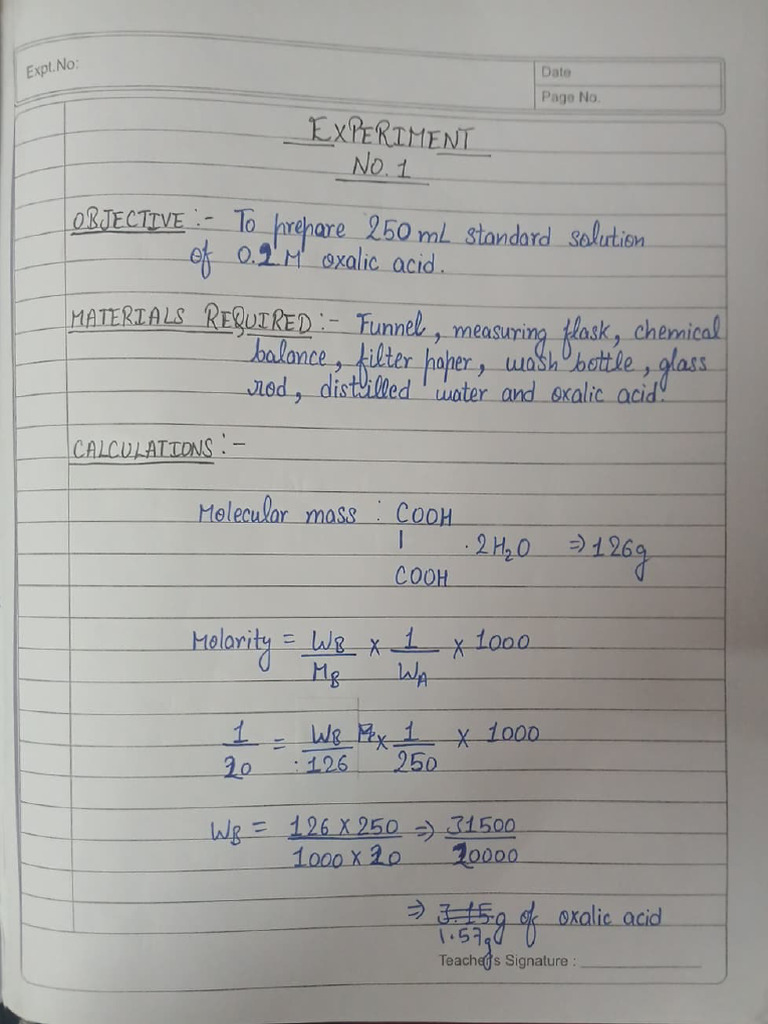 Expt.No:
Date
Page No.
EXPERIMENT
NO. 1
OBJECTIVE :- To prepare 250 mL standard solution
of M oxalic acid.
MATERIALS REQUIRED :- Funnel, measuring flask, chemical
balance, filter paper, wash bottle, glass
rod, distilled water and oxalic acid.
CALCULATIONS :-
Molecular mass : COOH
| . 2H₂O ⇒ 126g
COOH
Molarity = W_B/M_B × 1/W_A × 1000
1/20 = W_B/126 × 1/250 × 1000
W_B = 126 × 250/1000 × 20 ⇒ 31500/20000
⇒ 3.15g of oxalic acid
1.57g
Teacher's Signature :